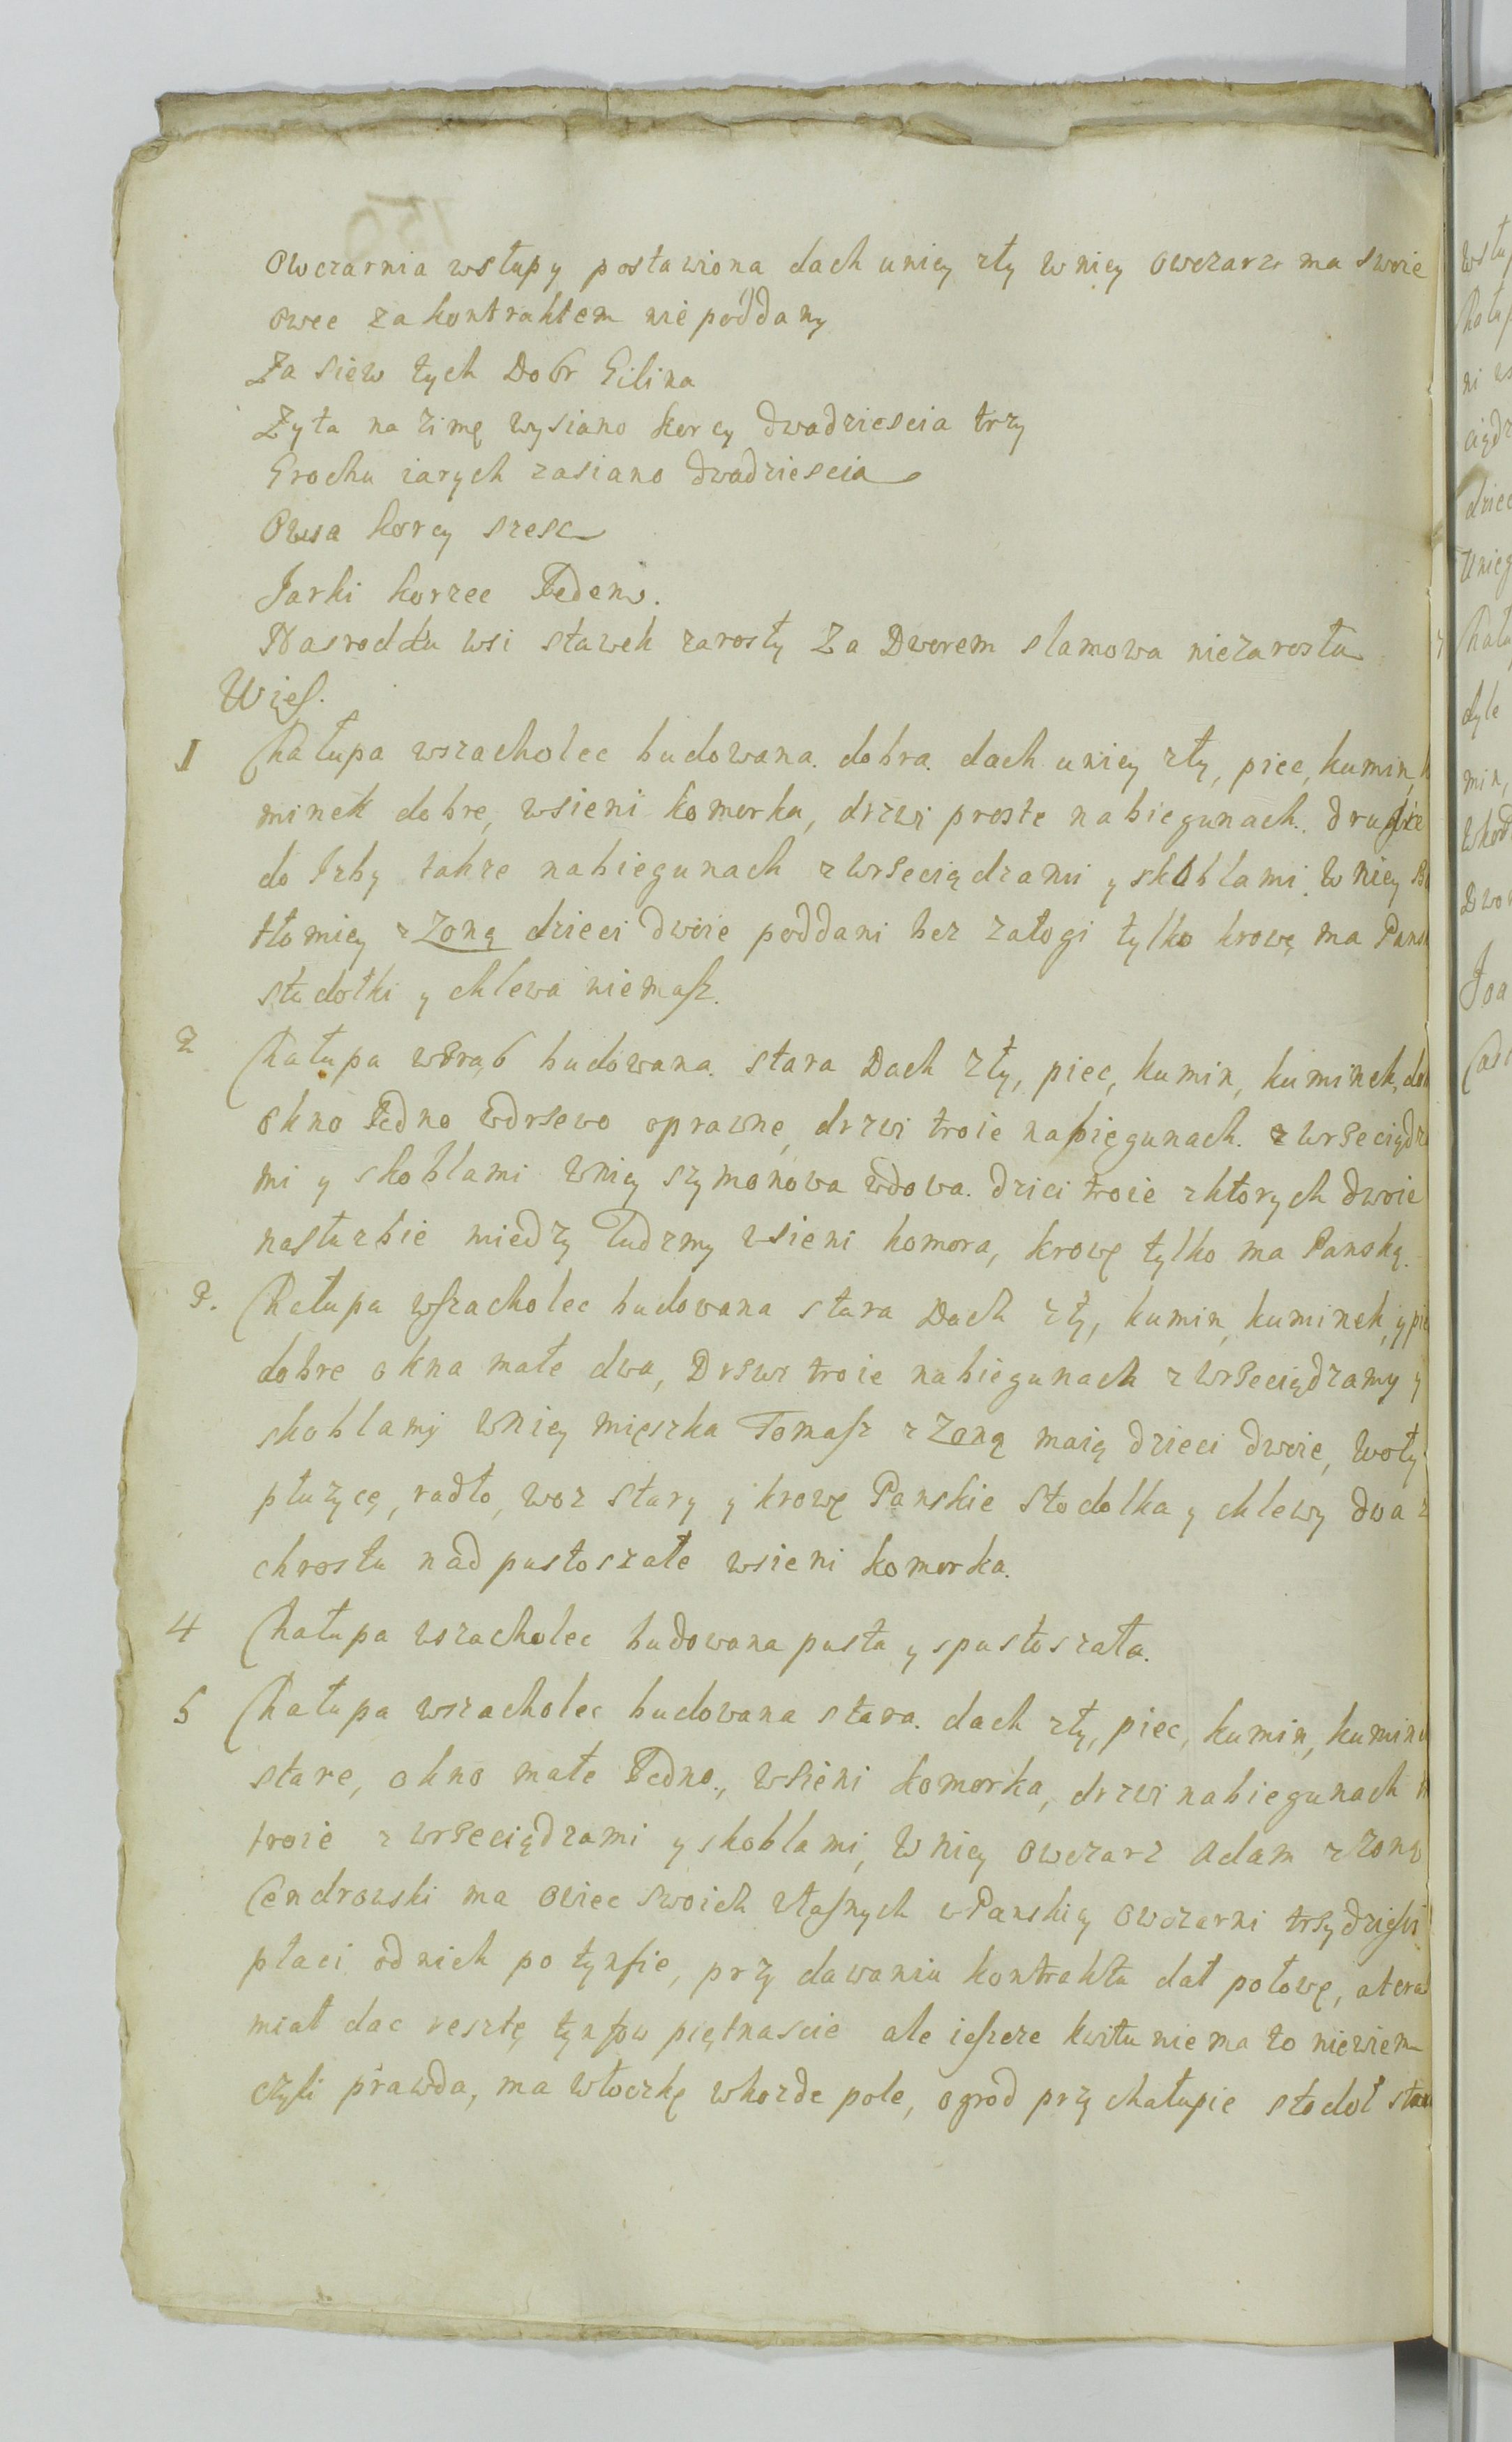 Owczarnia wstupy postawiona dach unicy zły wnicy owczarz ma swoie
owce za kontraktem nie poddany
Za siew tych Dobr Gilina
Zyta na zimę wysiano korcy dwadziescia trzy
Grochu iarych zasiano dwadziescia
Owsa korcy szesc
Jarki korzec Jeden.
Nasrodku wsi stawek zarosły Za Dworem slamowa niezarosła
Wieſ.
1 Chałupa wszacholec budowana. dobra. dach unicy zły, piec, kumin, k
minek dobre, wsieni komorka, drzwi proste nabiegunach. drugie
do Izby takze nabiegunach zwrseciądzami y skoblami. Wnicy Ba
tłomiey z Zoną dzieci dwoie poddani bez załogi tylko krowę ma Pans
stodołki y chlewa niemaſz.
2 Chałupa wsrąb budowana. stara Dach zły, piec, kumin, kuminek, dob
okno Jedno wdrsewo oprawne, drzwi troie nabiegunach. zwrseciądz
mi y skoblami wnicy szymonowa wdowa. dzici troie zktorych dwoie
nasłuzbie miedzy ludzmy wsieni komora, krowę tylko ma Panską.
3. Chałupa wſzacholec budowana stara Dach zły, kumin, kuminek, y pie
dobre okna małe dwa, Drswi troie nabiegunach zwrseciądzamy y
skoblamy wnicy mięszka Tomaſz z Zoną maią dzieci dwoie, Woły
płuzycę, radło, woz stary y krowę Panskie stodolka y chlewy dwa z
chrostu nadpustoszałe wsieni komorka.
4 Chałupa wszacholec budowana pusta y spustoszała.
5 Chałupa wszacholec budowana stara. dach zły, piec, kumin, kumine
stare, okno małe Jedno., wsieni komorka, drzwi nabiegunach
troie zwrseciądzami y skoblami, Wnicy owczarz Adam z zoną
Cendrowski ma owiec swoich właſnych wPanskiy owczarni trsydzieſci
płaci odnich po tynfie, przy dawaniu kontraktu dał połowę, atera
miał dac resztę tynfow piętnascie ale ieſzcze kwitu niema to niewiem
czyli prawda, ma włoczkę wkozde pole, ogrod przy chałupie stodoł stara